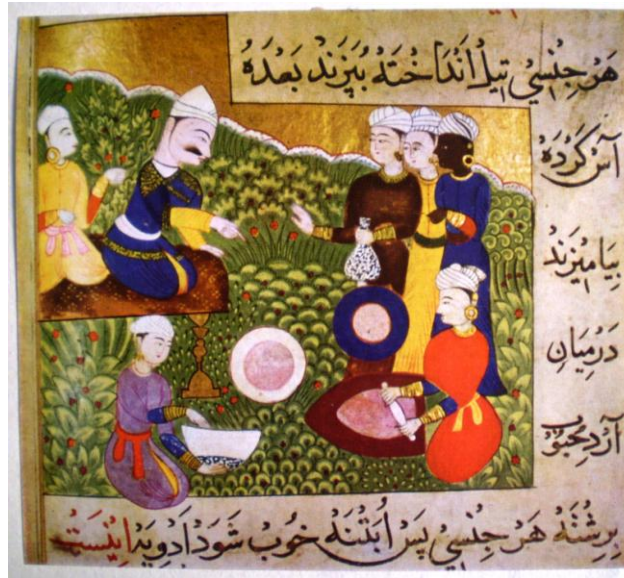 هَرْ جِنْسِيْ تِيلْ اَنْدَاخْتَهْ بُپَزَنْد بَعْدَهُ
آسْ كَرْدَهْ
بِيَامِيْزَنْدْ
دَرْمِيَانِ
آرْدِ مَحْبُوبْ
بِرِشْتَهْ هَرْ جِنْسِيْ پَسْ اُبَتْنَهْ خُوبْ شَوَدْ اَدْوِيَهْ اِيْنَسْتْ